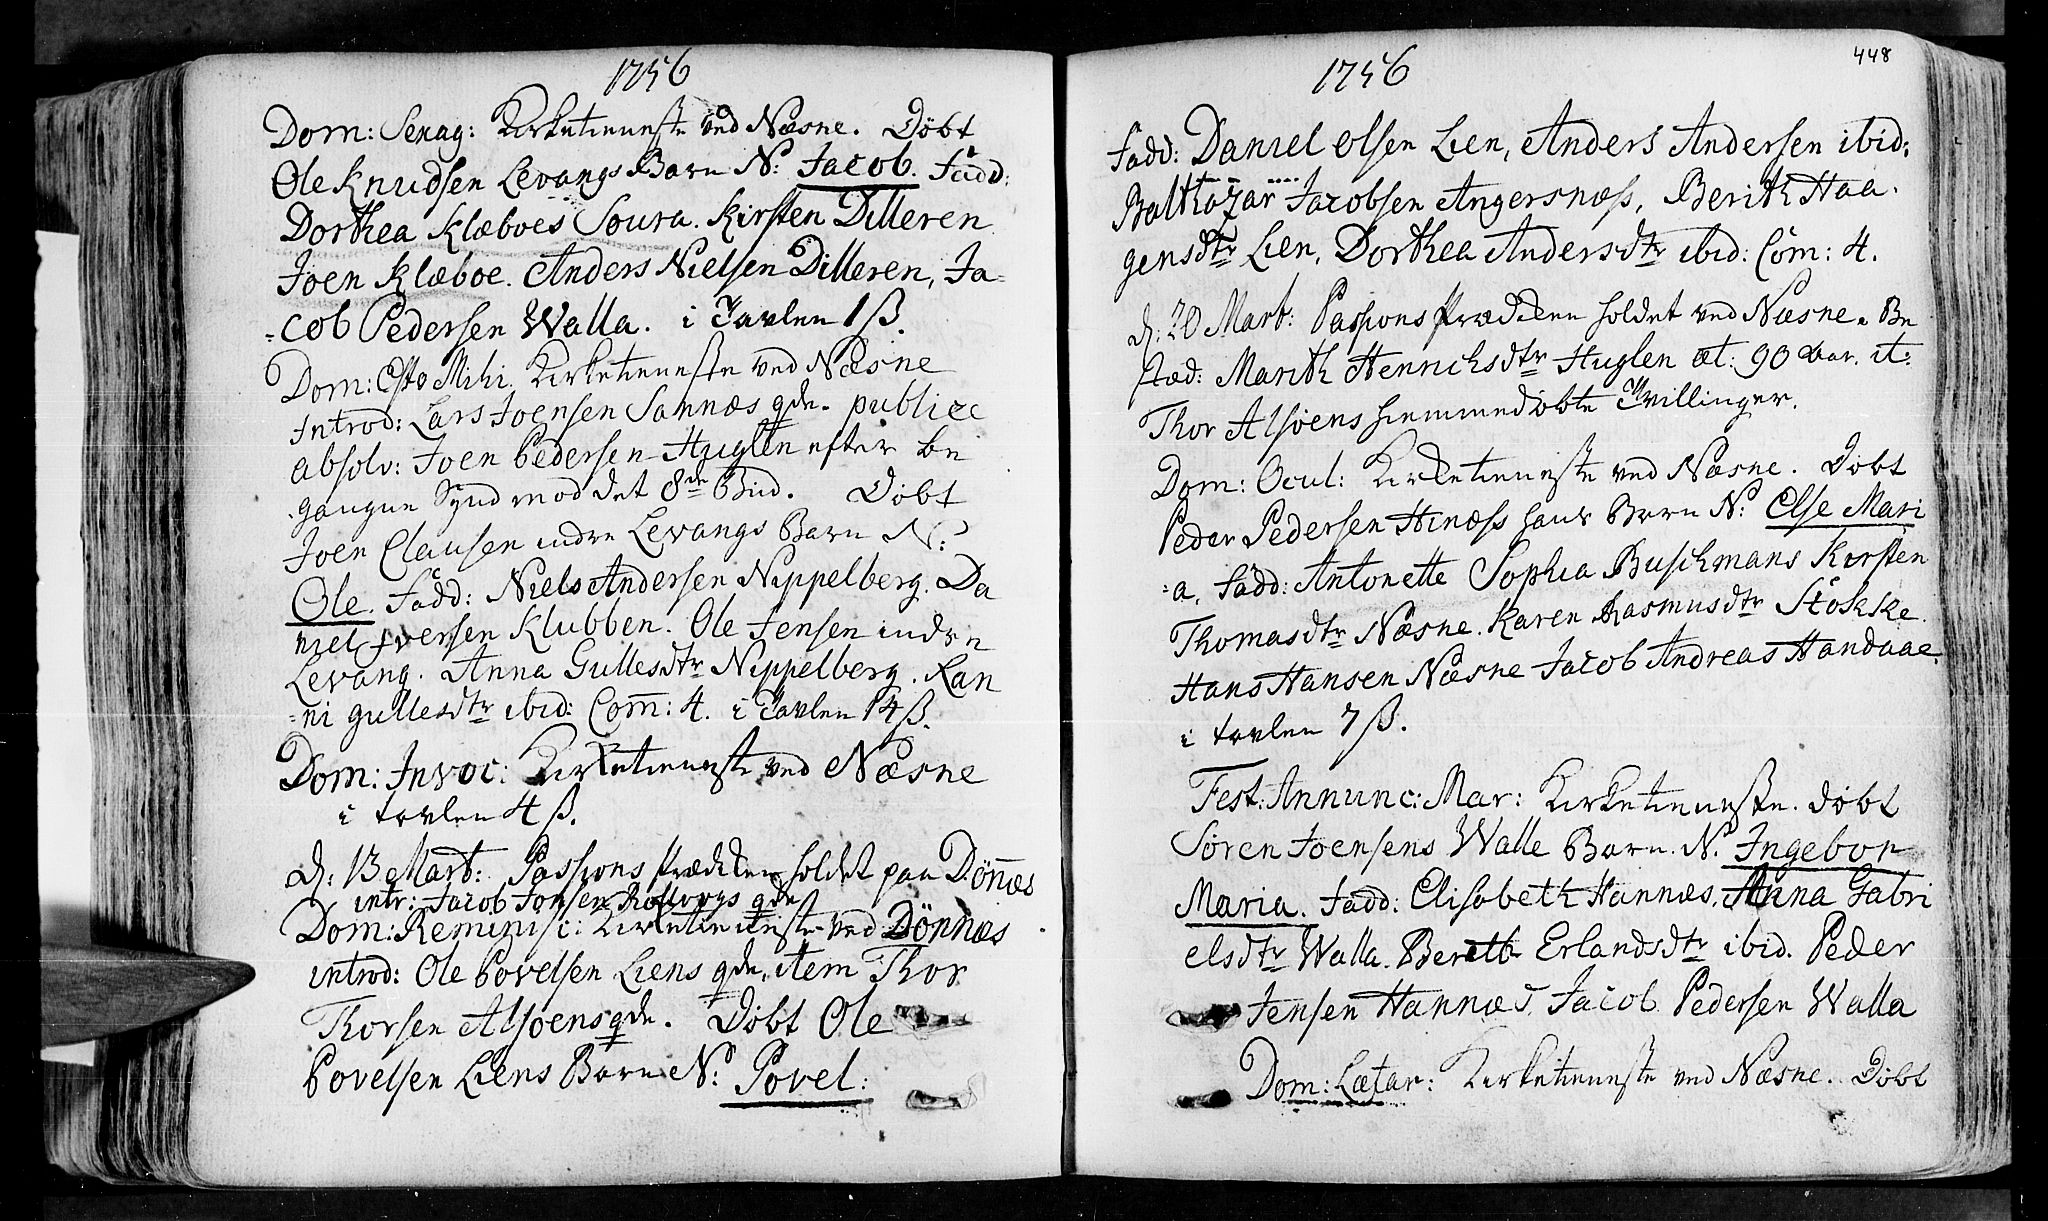 1756
Dom: Sexag: Kirketieneste ved Næsne. Döbt
Ole Knudsen Levangs Barn N: Jacob. Fadd:
Dorthea Klæboes Soura. Kirsten Dilleren
Joen Klæboe. Anders Nielsen Dilleren, Ja-
-cob Pedersen Walla. i Tavlen 1 ß.
Dom: Esto Mihi. Kirketieneste ved Næsne
Introd: Lars Joensen Sannæs qde. publice
absolv: Joen Pedersen Huglen efter be
gangne Synd mod det 8de Bud. Döbt
Joen Clausen indre Levangs Barn N:
Ole. Fadd: Niels Andersen Nippelberg. Da
niel Iversen Klubben. Ole Jensen indre
Levang. Anna Gullesdtr Nippelberg. Ran
-ni Gullesdtr ibid: Com: 4. i Tavlen 14 ß.
Dom: Invoc: Kirketieneste ved Næsne
i tavlen 4 ß.
d: 13 Mart: Passions Prædiken holdet paa Dönnæs
intr: Jacob Jonsen qde
Dom: Reminisc: Kirketieneste ved Dönnæs
introd: Ole Povelsen Liens qde, item Thor
Thorsen Alsöens qde. Döbt Ole
Povelsen Liens Barn N: Povel:
1756
448
Fadd: Daniel Olsen Lien, Anders Andersen ibid:
Balthazar Jacobsen Angersnæss, Berith Haa-
gensdtr Lien, Dorthea Andersdtr ibid: Com: 4.
d: 20 Mart: Passions Prædiken holdet ved Næsne. Be
stæd: Marith Henrichsdtr Huglen æt: 90 aar. it:
Thor Alsöens hiemmedöbte Tvillinger.
Dom: Ocul: Kirketieneste ved Næsne. Döbt
Peder Pedersen Hinæss hans Barn N: Else Mari
-a. Fadd: Antonette Sophia Buschmans Kirsten
Thomasdtr Næsne. Karen Rasmusdtr Stökke.
Hans Hansen Næsne Jacob Andreas Handaae.
i tavlen 7 ß.
Fest: Annunc: Mar: Kirketieneste. döbt
Sören Joensens Walle Barn. N. Ingebor
Maria. Fadd: Elisabeth Hannæs. Anna Gabri
elsdtr Walla. Bereth Erlandsdtr ibid. Peder
Jensen Hannæs Jacob Pedersen Walla
Dom: Lætar: Kirketieneste ved Næsne. Döbt